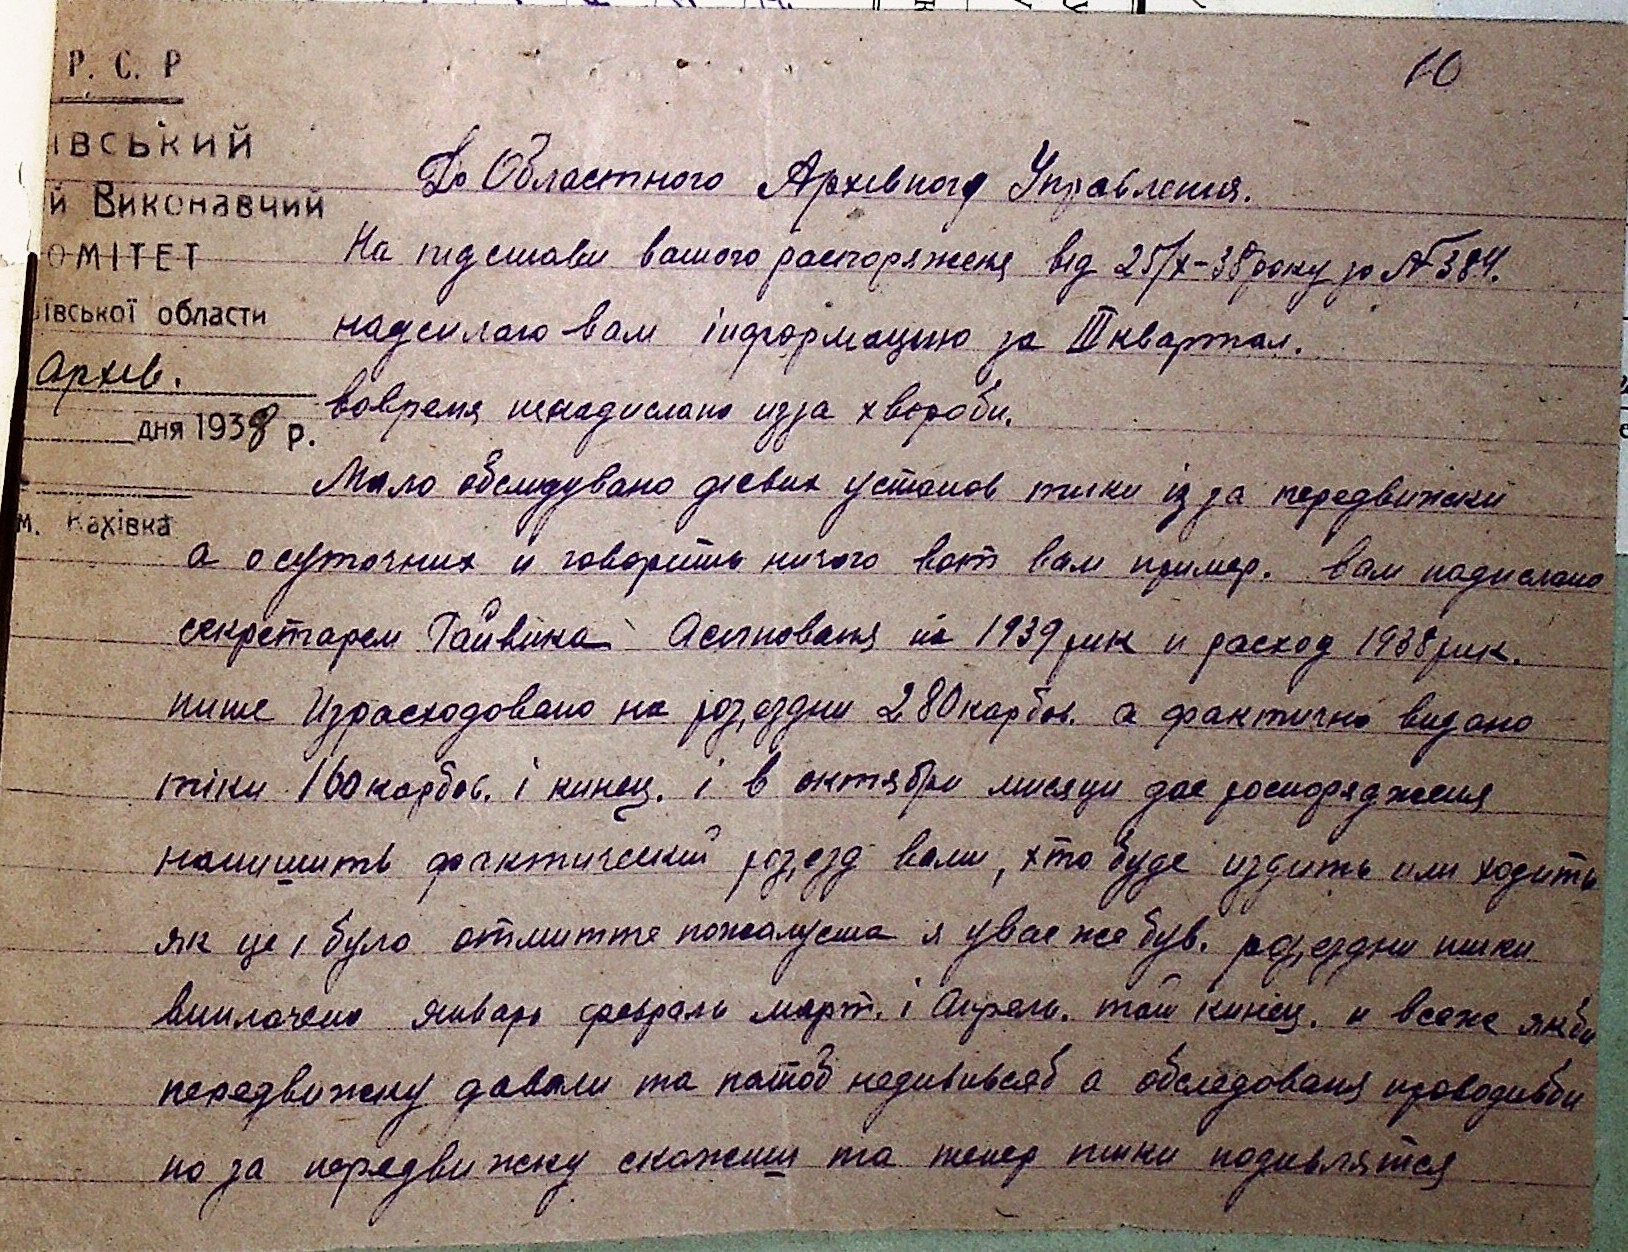 10
Р. С. Р
ІВСЬКИЙ
й Виконавчий
ОМІТЕТ
ївської области
Архів.
дня 1938 р.
м. Кахівка
До Областного Архівного Управления.
На підстави вашого распоряженя від 25/х-38 року за № 384.
надсилаю вам інформацию за III квартал.
вовремя ненадислано изза хвороби.
Мало обслидувано діевих установ тилки із за передвижки
а осуточних и говорить ничого вот вам пример. вам надислано
секретарем Асигнованя на 1939 рик и расход 1938 рик.
пише Израсходовано на роз,ездни 280 карбов. а фактично видано
тіки 160 карбов. і кинец. і в октябри мисяци дае роспорядженя
напишить фактический роз,езд вами, хто буде издить или ходить
як це і було отмитте пожалуста я увас же був. роз,ездни тики
виплачено январь февраль март. і Апрель. той кинец. и всеже якби
передвижку давали та патоб недивився б а обследованя проводивби
но за передвижку скажеш та тепер тики подивлятся